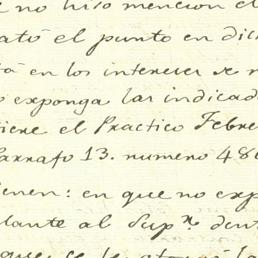 no hiso mencion el
ató el punto en dic
tá en los intereses
exponga las indicad
iere el Practico Febre
arrafo 13. numero 48
ienen: en que no exp
lante al Sup.r den
que se le